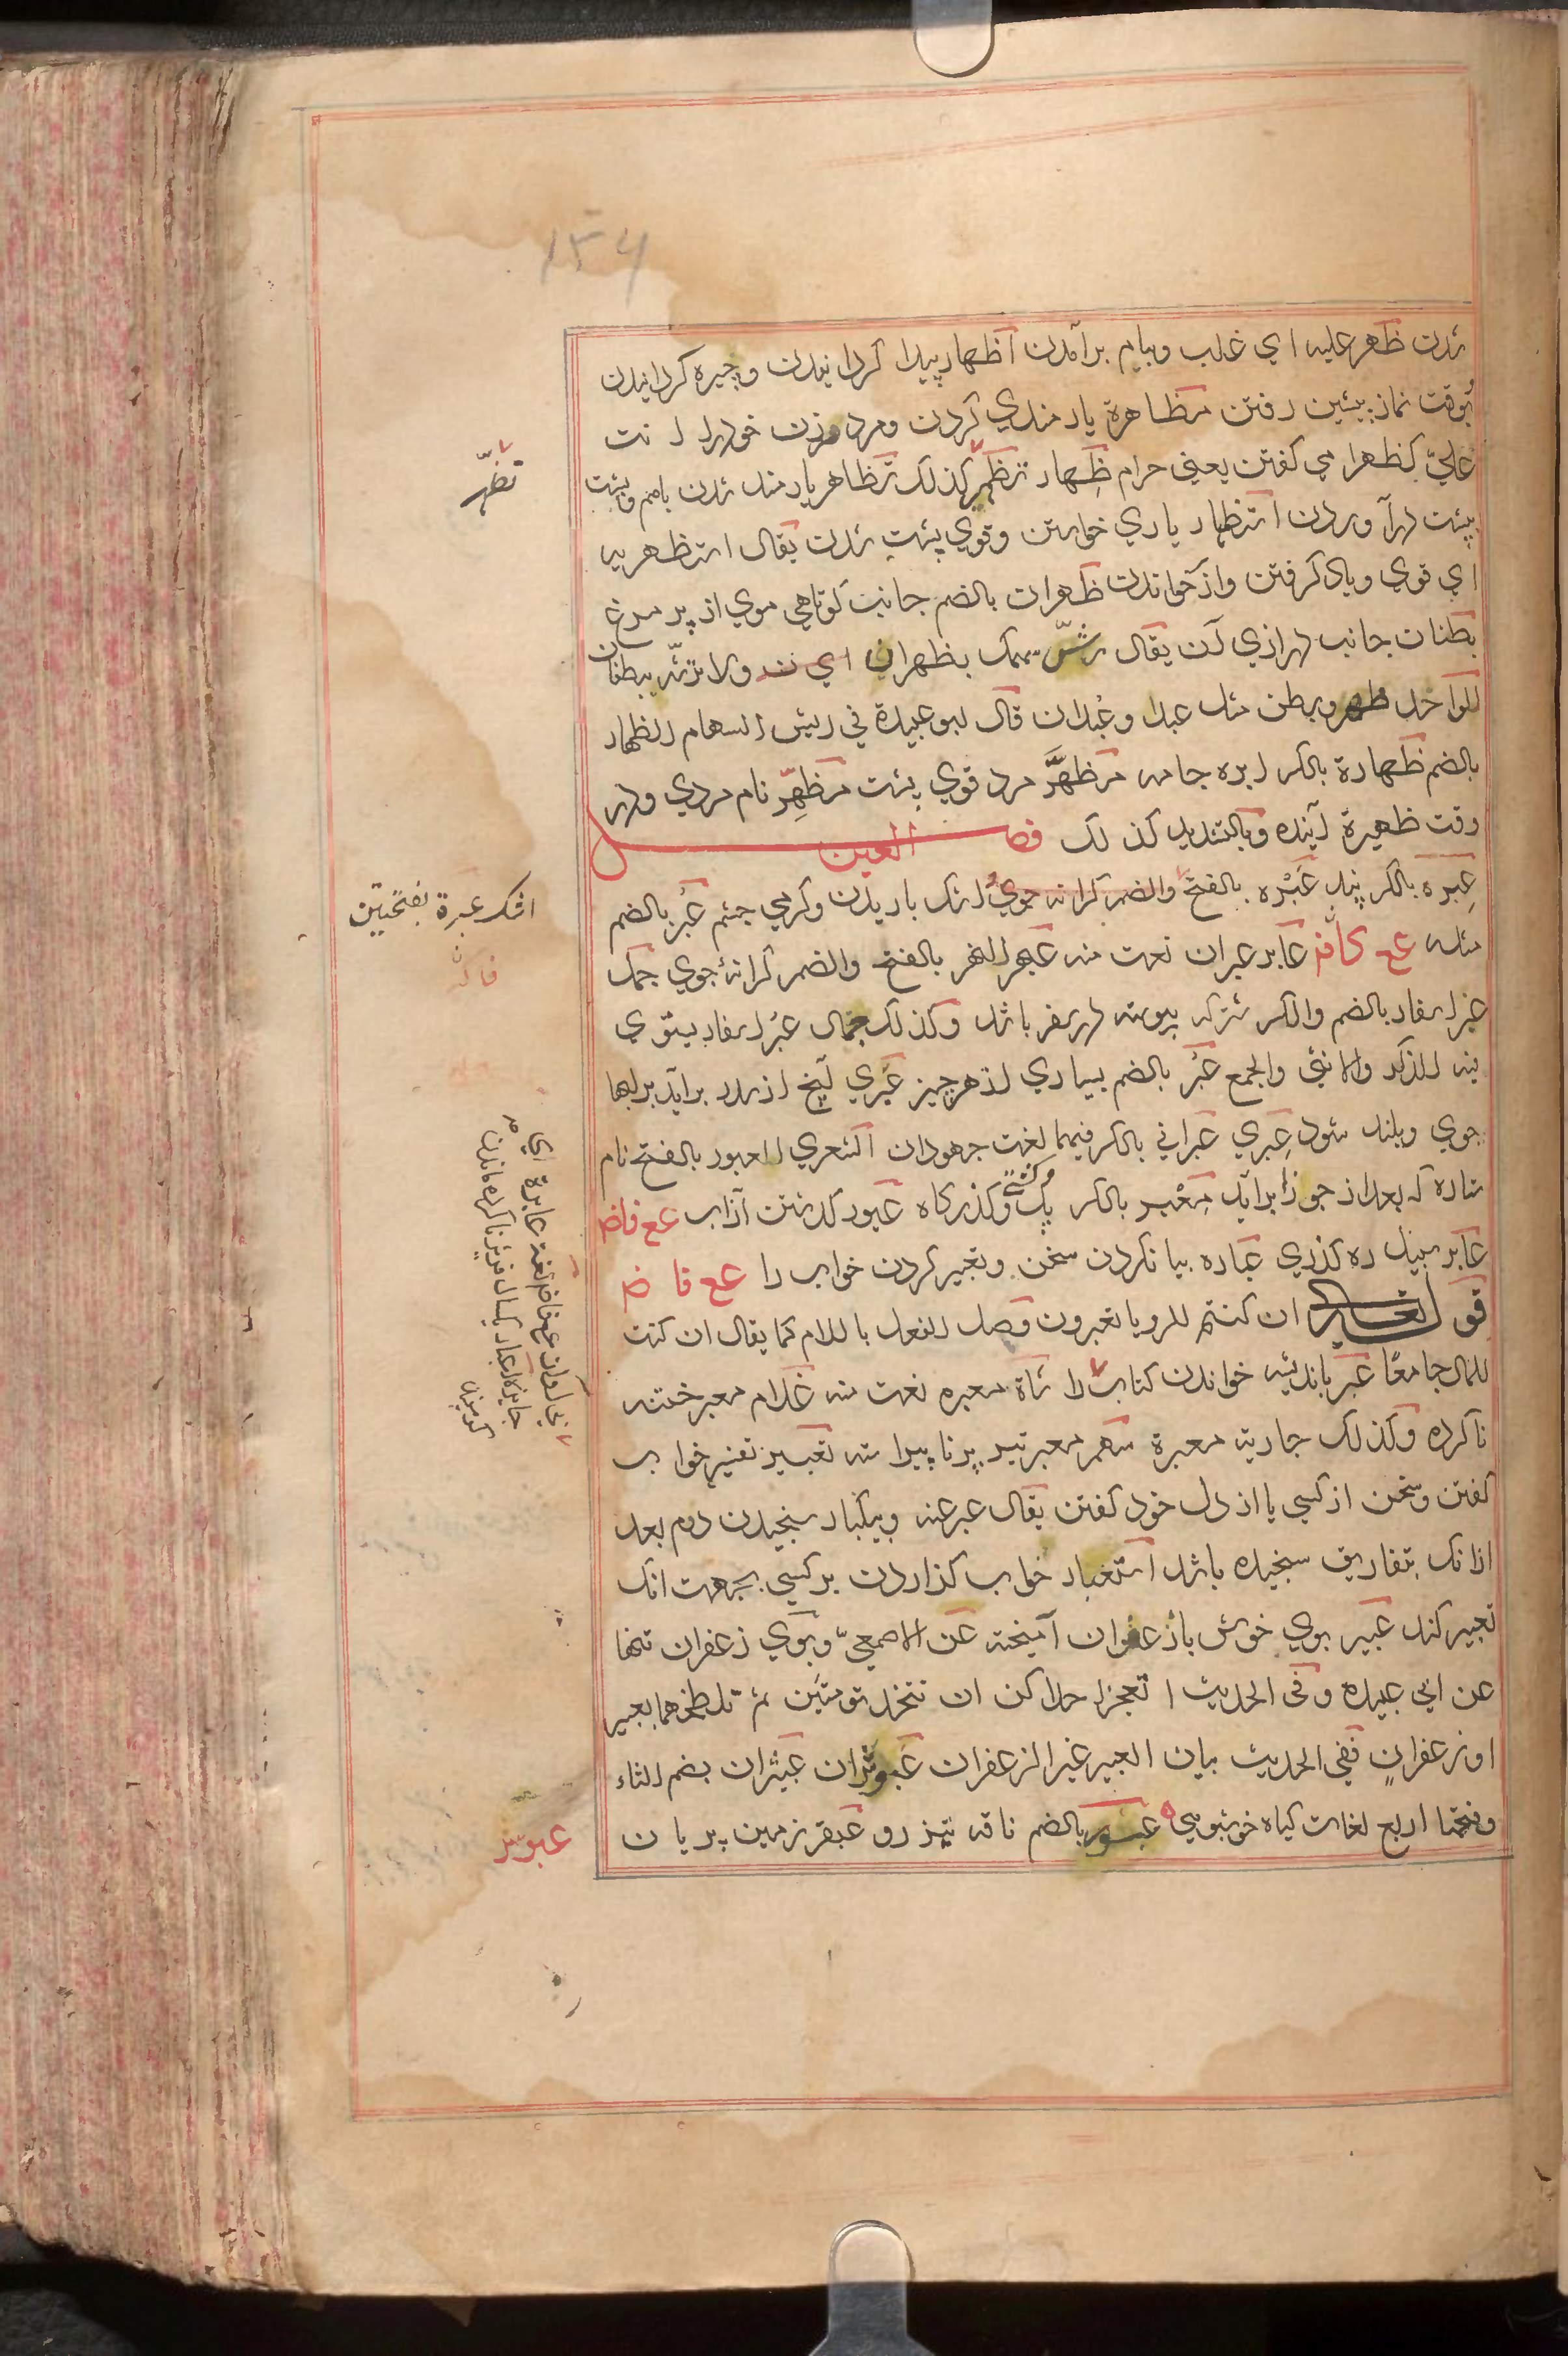 ١٥٤
شدن ظهر علیه ای غلب وببام برآمدن اظهار پیدا کردانیدن وچیره کردانیدن
بوقت نماز پیشین رفتن مظاهرة یارمندی کردن ومرد مزن خودرا انت
علیّ کظهر امی کفتن یعنی حرام ظِهار تظهّر کذلک تظاهر یارمند شدن باهم وپشت
بپشت درآوردن استظهار یاری خواستن وقوی پشت شدن یقال استظهر به
ای قوی ویاد کرفتن واز خواندن ظهران بالضم جانب کوتاهی موی از پر مرغ
بطنان جانب درازی آن یقال رشّ سهمک بظهران ولا ترشه ببطنان
الواحد ظهر وبطن مثل عبد وعُبدان قال ابو عبیدة فی ریش السهام الظهار
بالضم ظهارة بالکسر ابره جامه مظهَّر مرد قوی پشت مظهِّر نام مردی ودر
وقت ظهیرة آینده وبالتشدید کذلک فصل العین
عِبره بالکسر پند عَبْره بالفتح والضم کرانه جوی اشک باریدن وکرمی چشم عُبر بالضم
مثله عع کاف عابر عبران نعت منه عبر النهر بالفتح والضم کرانۀ جوی جمل
عبر اسفار بالضم والکسر شترکه پیوسته در سفر باشد وکذلک جمال عبر اسفار یستوی
فیه المذکر والانثی والجمع عُبر بالضم بسیاری از هر چیز عبری آنچ از سدر برآید بر لبها
جوی وبلند شود عِبری عبرانی بالکسر فیهما لغت جهودان الشعری العبور بالفتح نام
ستاره که بعد از جوزا برآید مِعْبر بالکسر پل وکشتی وکذرکاه عبور کذشتن از آب عع فاض
عابر سبیل ره کذری عباره بیان کردن سخن وتعبیر کردن خواب را عع فا ض
قو تعالی ان کنتم للرویا تعبرون وصل الفعل باللام کما یقال ان کنت
للمال جامعًا عبر باندیشه خواندن کتاب را شاة معبره نعت منه غلام معبر ختنه
ناکرده وکذلک جاریة معبرة سهم معبر تیر پر ناپیراسته تعبیر تفسیر خواب
کفتن وسخن از کسی یا از دل خود کفتن یقال عبر عنه وبیکبار سنجیدن درم بعد
ازانک بتفاریق سنجیده باشد استعبار خواب کذاردن بر کسی بجهت انک
تعبیر کند عبیر بوی خوش باز عفران آمیخته عن الاصمعیّ وبوی زعفران تنها
عن ابی عبیده وفی الحدیث اتعجز احداکن ان تتخذ تومتین ثم تلطخهما بعبیر
او زعفرانٍ ففی الحدیث بیان العبیر غیر الزعفران عبوثران عبیثران بضم الثاء
وفتحها اربع لغات کیاه خوشبوی عبسور بالضم ناقه تیز رو عبقر زمین پریان
تظهّر
اشک عبرة بفتحتین
عبوثر